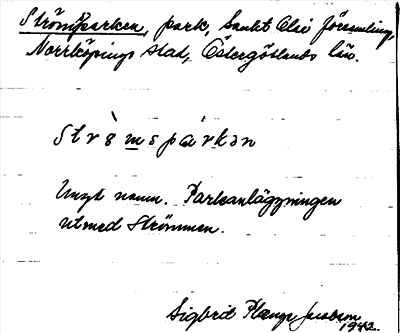 Strömparken, park, Sankt Olai församling,
Norrköpings stad, Östergötlands län.
Strὼmspárkən
Ungt namn. Parkanläggningen
utmed Strömmen.
Sigbrid Plænge Jacobson
1942.